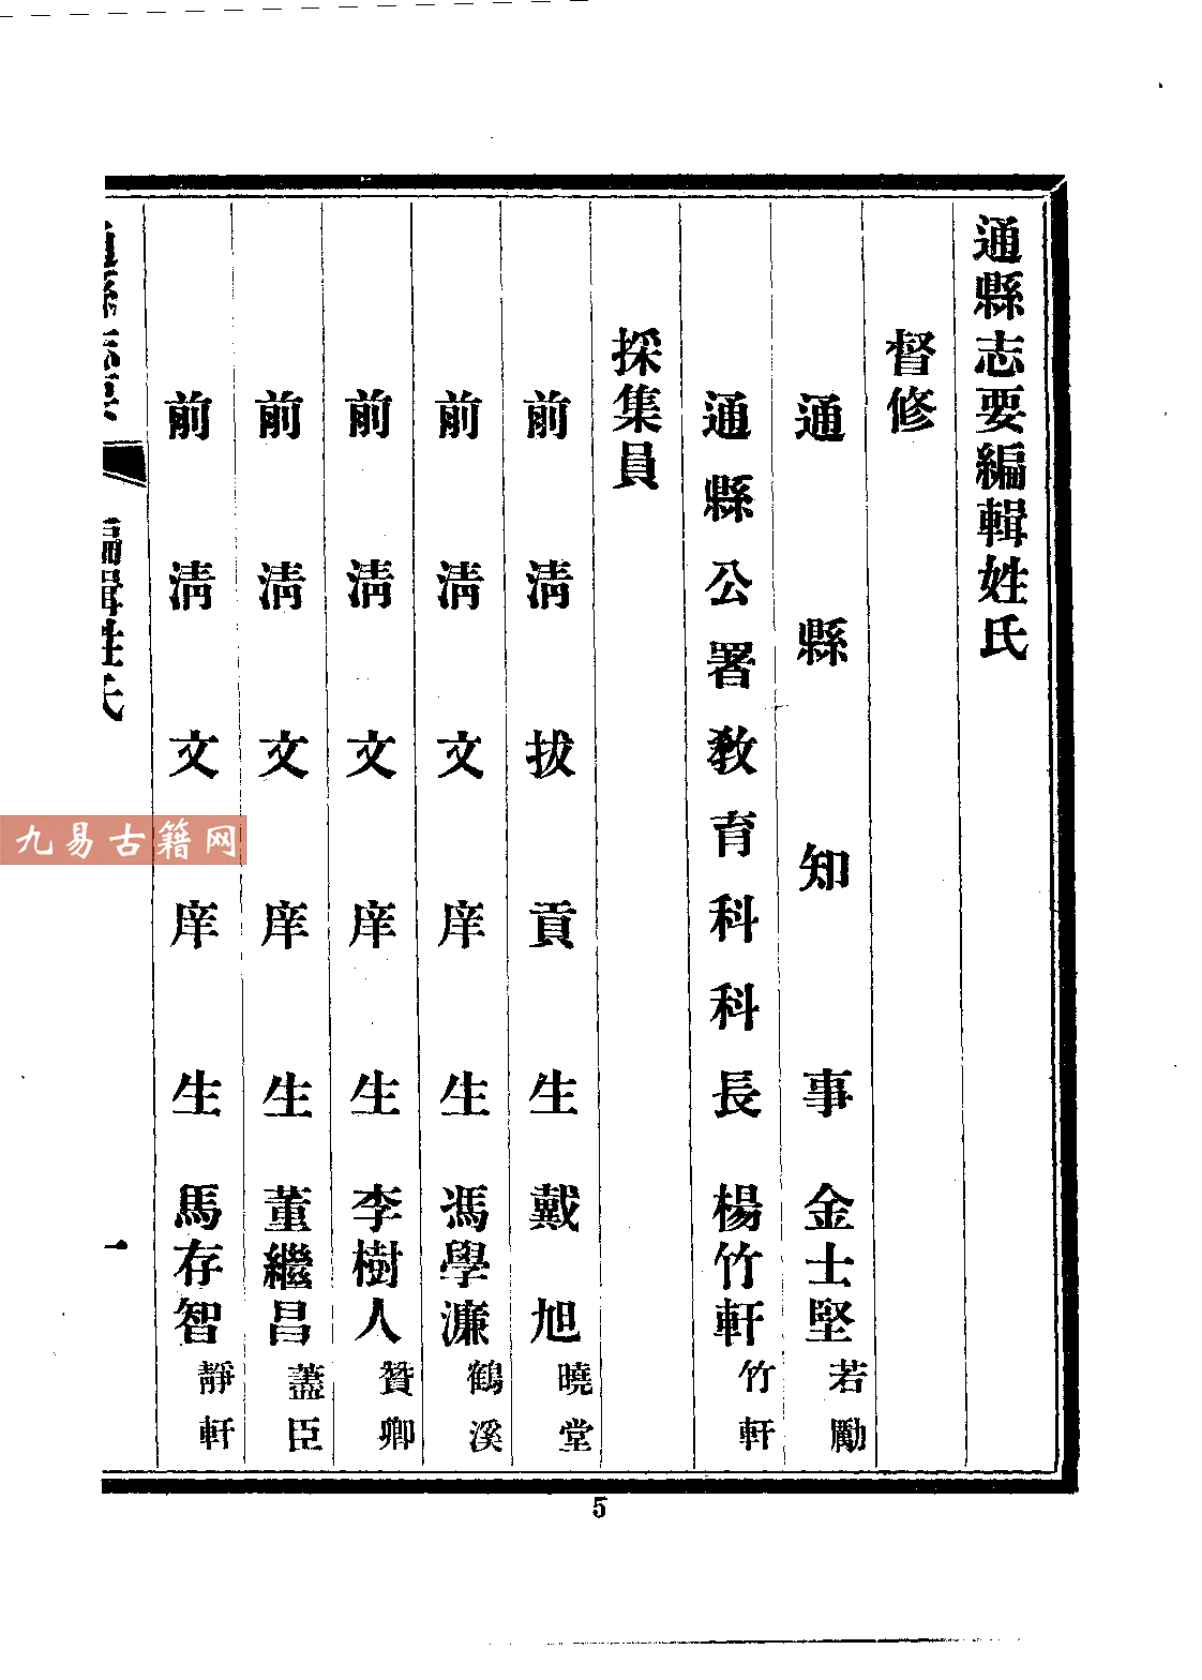 通縣志要編輯姓氏
督修
通縣知事 金士堅 若勵
通縣公署敎育科科長 楊竹軒 竹軒
採集員
前淸拔貢生 戴旭 曉堂
前淸文庠生 馮學濂 鶴溪
前淸文庠生 李樹人 贊卿
前淸文庠生 董繼昌 藎臣
前淸文庠生 馬存智 靜軒
通縣志要 編輯姓氏 一
九易古籍网
5